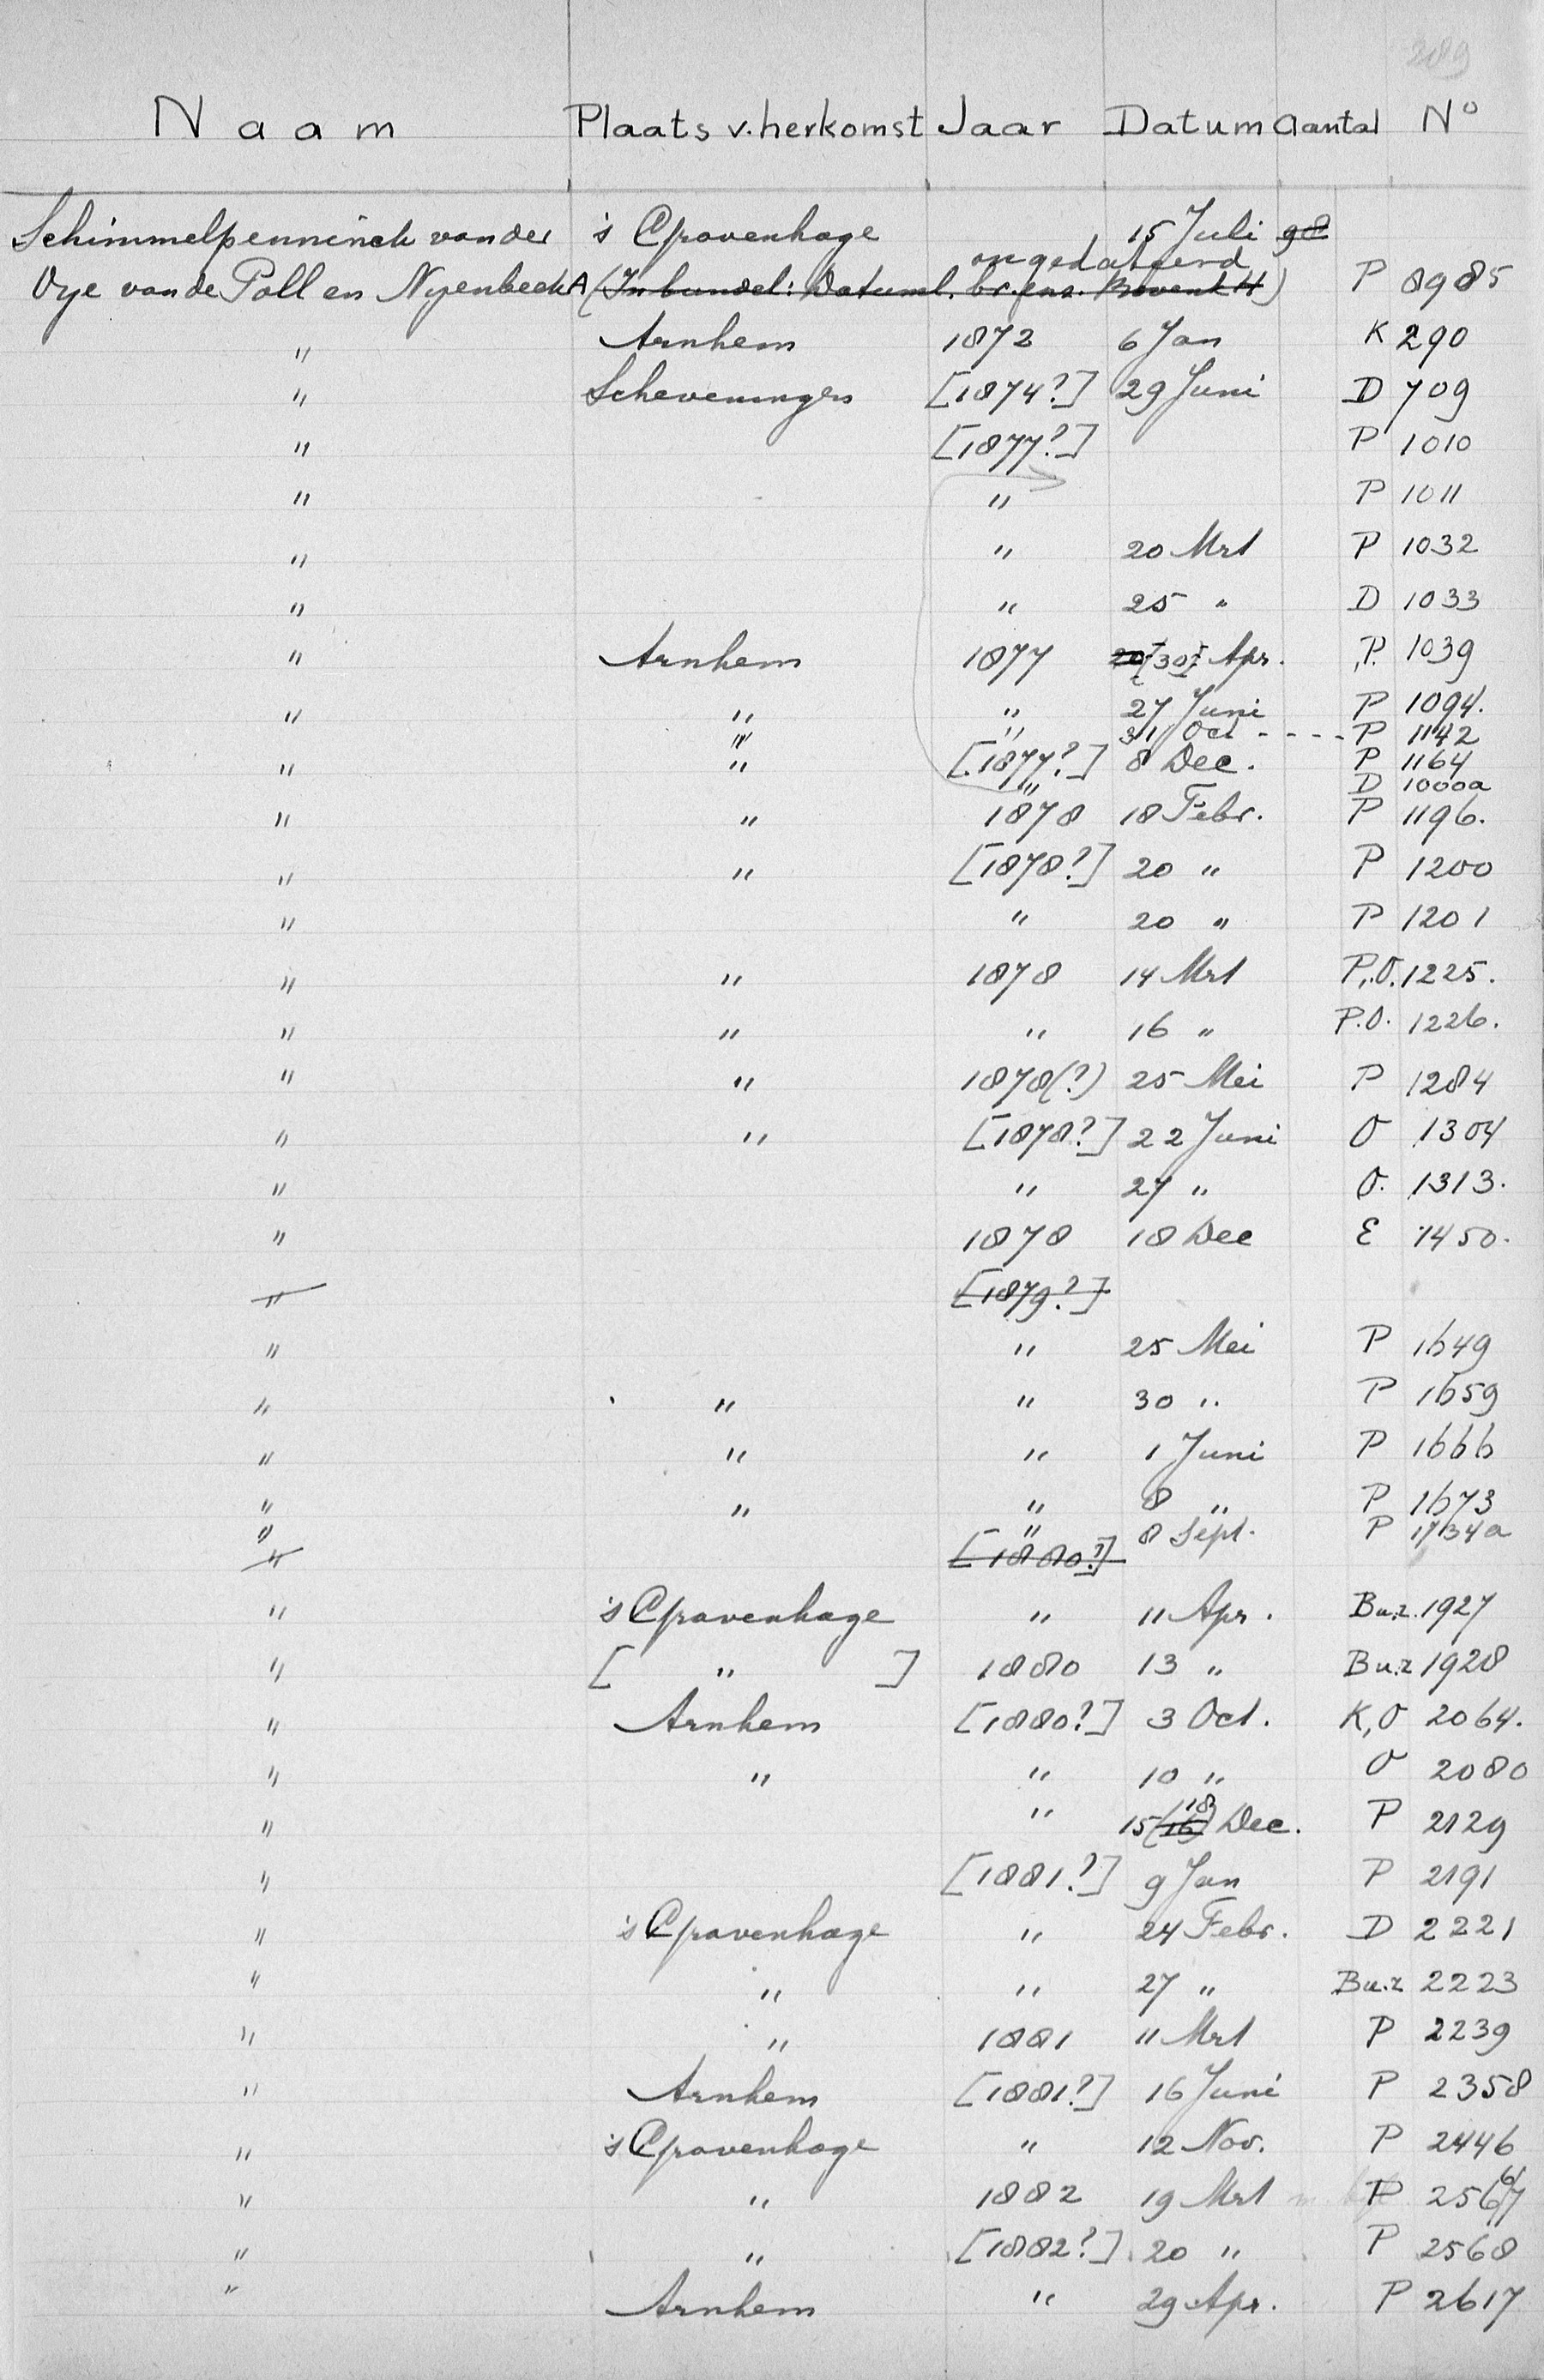 289
Naam Plaats v. herkomst Jaar Datum Aantal No
Schimmelpenninck van der 's Gravenhage 15 Juli 98
ongedateerd
Oye van de Poll en Nyenbeek A (In bundel: Datuml. br. enz. Bovenk H) P 8985
" Arnhem 1872 6 Jan K 290
" Scheveningen [1874?] 29 Juni D 709
" [1877?] P 1010
" " P 1011
" " 20 Mrt P 1032
" " 25 " D 1033
" Arnhem 1877 20 [30?] Apr. P. 1039
" " " 27 Juni P 1094.
" " 31 Oct - - - - P 1142
" " [1877?] 8 Dec. P 1164
" D 1000a
" " 1878 18 Febr. P 1196.
" " [1878?] 20 " P 1200
" " 20 " P 1201
" " 1878 14 Mrt P,.O. 1225.
" " " 16 " P.O. 1226.
" " 1878(?) 25 Mei P 1284
" " [1878?] 22 Juni O 1304
" " 27 " O. 1313.
" 1878 18 Dec E 1450.
" [1879?]
" " 25 Mei P 1649
" " " 30 " P 1659
" " " 1 Juni P 1666
" " " 8 " P 1673
" " 8 Sept. P 1734a
" [1880?]
" 's Gravenhage " 11 Apr. Bu.z. 1927
" [ " ] 1880 13 " Bu.z 1928
" Arnhem [1880?] 3 Oct. K,O 2064.
" " " 10 " O 2080
" " 15 (16) 18 Dec. P 2129
" [1881?] 9 Jan P 2191
" 's Gravenhage " 24 Febr. D 2221
" " " 27 " Bu.z 2223
" " 1881 11 Mrt P 2239
" Arnhem [1881?] 16 Juni P 2358
" 's Gravenhage " 12 Nov. P 2446
" " 1882 19 Mrt P 2567
" " [1882?] 20 " P 2568
" Arnhem " 29 Apr. P 2617